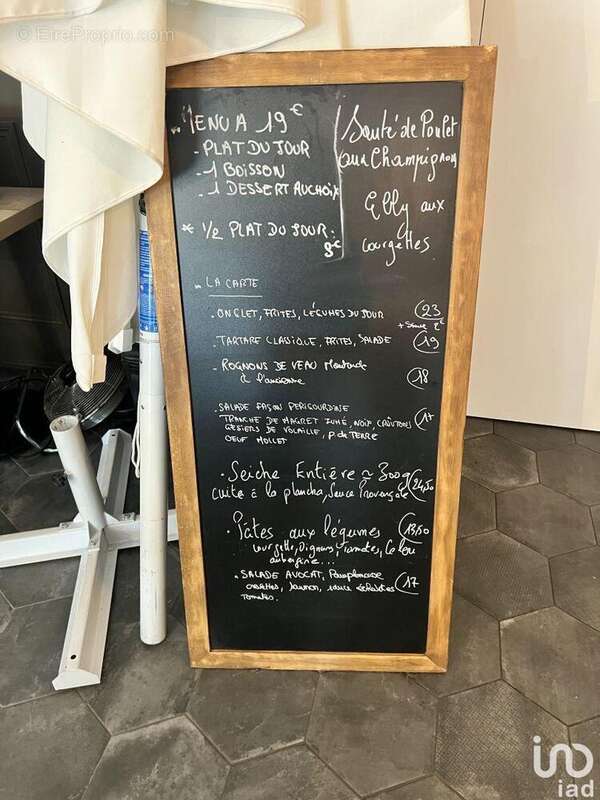 © EtreProprio.com
MENU A 19€
- PLAT DU JOUR
- 1 BOISSON
- 1 DESSERT AU CHOIX
* 1/2 PLAT DU JOUR:
9€
Sauté de Poulet
aux Champignons
Ebly aux
courgettes.
LA CARTE
. ONGLET, FRITES, LÉGUMES DU JOUR 23
+ Sauce 2€
. TARTARE CLASSIQUE, FRITES, SALADE 19
. ROGNONS DE VEAU Moutarde
à l'ancienne 18
. SALADE FAÇON PERIGOURDINE 17
TRANCHE DE MAGRET FUMÉ, NOIX, CROÛTONS
GESIERS DE VOLAILLE, P. DE TERRE
OEUF MOLLET
. Seiche Entière ≈ 300g
cuite à la plancha, Sauce Provençale 24,50
. Pâtes aux légumes 13,50
Courgette, Oignons, Tomates,
aubergine...
. SALADE AVOCAT, Pamplemousse 17
crevettes, Saumon, sauce
Tomates.
iad
iad